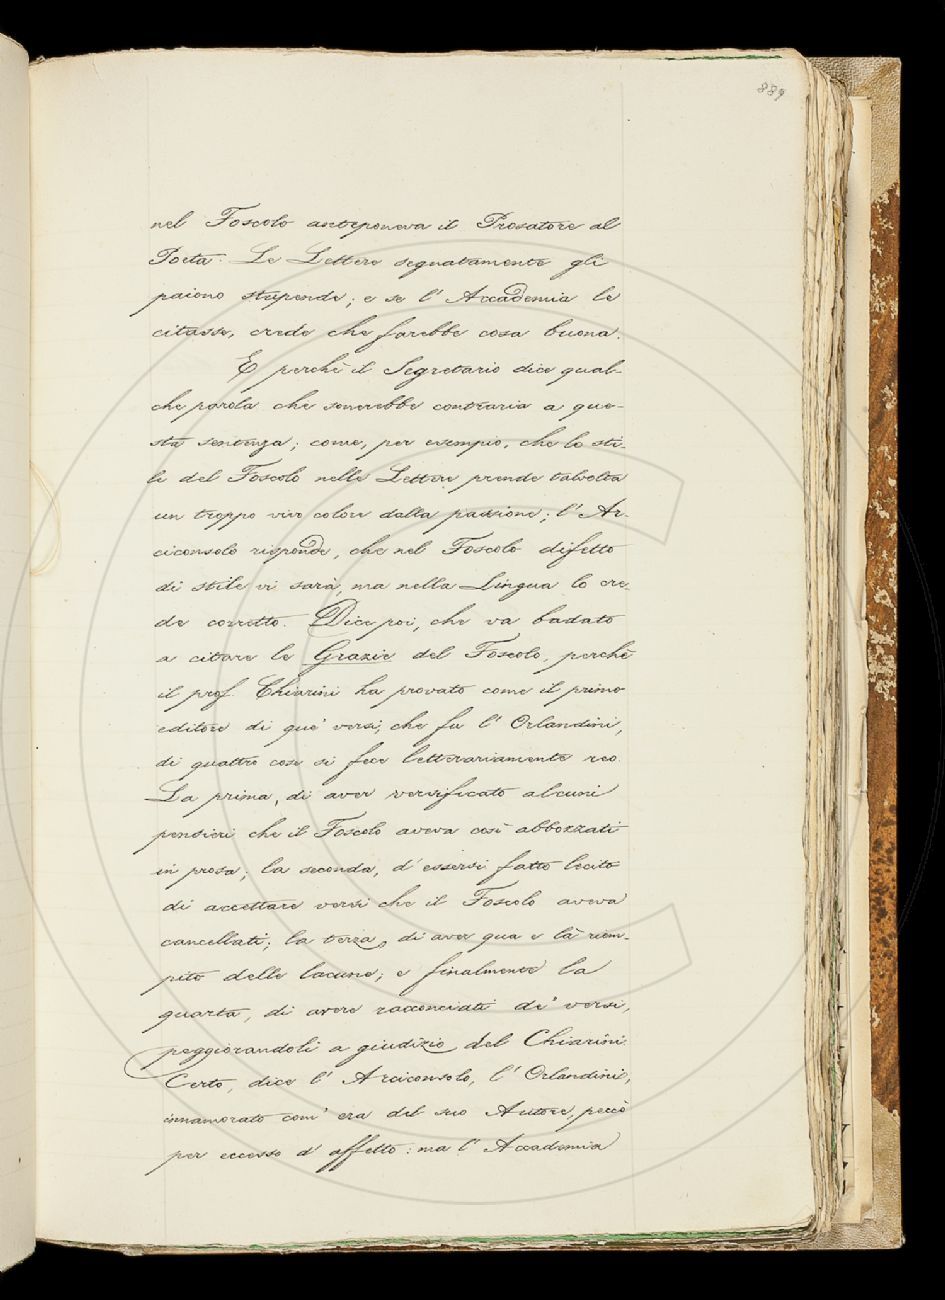 889
nel Foscolo anteponeva il Prosatore al
Poeta. Le Lettere segnatamente gli
paiono stupende; e se l'Accademia le
citasse, crede che farebbe cosa buona.
E perchè il Segretario dice qual-
che parola che senerebbe contraria a que-
sta sentenza; come, per esempio, che lo sti-
le del Foscolo nelle Lettere prende talvolta
un troppo vivo colore dalla passione; l'Ar-
ciconsolo risponde, che nel Foscolo difetto
di stile vi sarà, ma nella Lingua lo cre-
de corretto. Dice poi, che va badato
a citare le Grazie del Foscolo, perchè
il prof. Chiarini ha provato come il primo
editore di que' versi, che fu l'Orlandini,
di quattro cose si fece letterariamente reo.
La prima, di aver versificato alcuni
pensieri che il Foscolo aveva così abbozzati
in prosa; la seconda, d'essersi fatto lecito
di accettare versi che il Foscolo aveva
cancellati; la terza, di aver qua e là riem-
pito delle lacune; e finalmente la
quarta, di avere racconciati de' versi,
peggiorandoli a giudizio del Chiarini.
Certo, dice l'Arciconsolo, l'Orlandini,
innamorato com'era del suo Autore, peccò
per eccesso d'affetto: ma l'Accademia